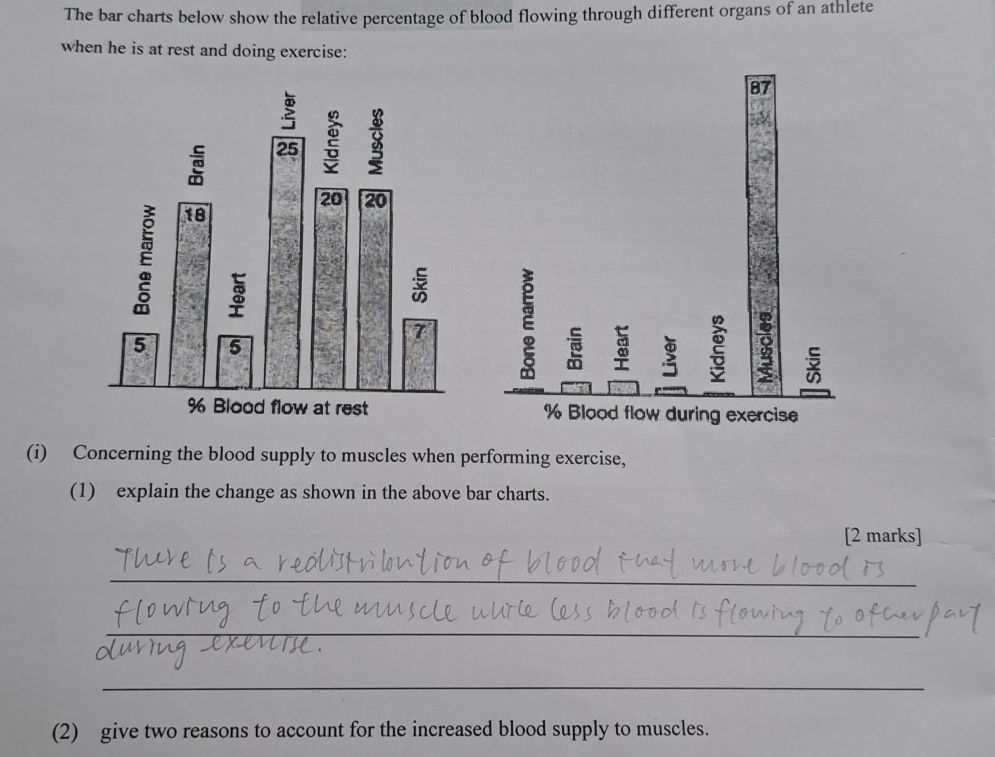 The bar charts below show the relative percentage of blood flowing through different organs of an athlete
when he is at rest and doing exercise:
Bone marrow
5
Brain
18
Heart
5
Liver
25
Kidneys
20
Muscles
20
Skin
7
% Blood flow at rest
Bone marrow
Brain
Heart
Liver
Kidneys
87
Muscles
Skin
% Blood flow during exercise
(i) Concerning the blood supply to muscles when performing exercise,
(1) explain the change as shown in the above bar charts.
[2 marks]
There is a redistribution of blood that more blood is
flowing to the muscle while less blood is flowing to other part
during exercise.
(2) give two reasons to account for the increased blood supply to muscles.